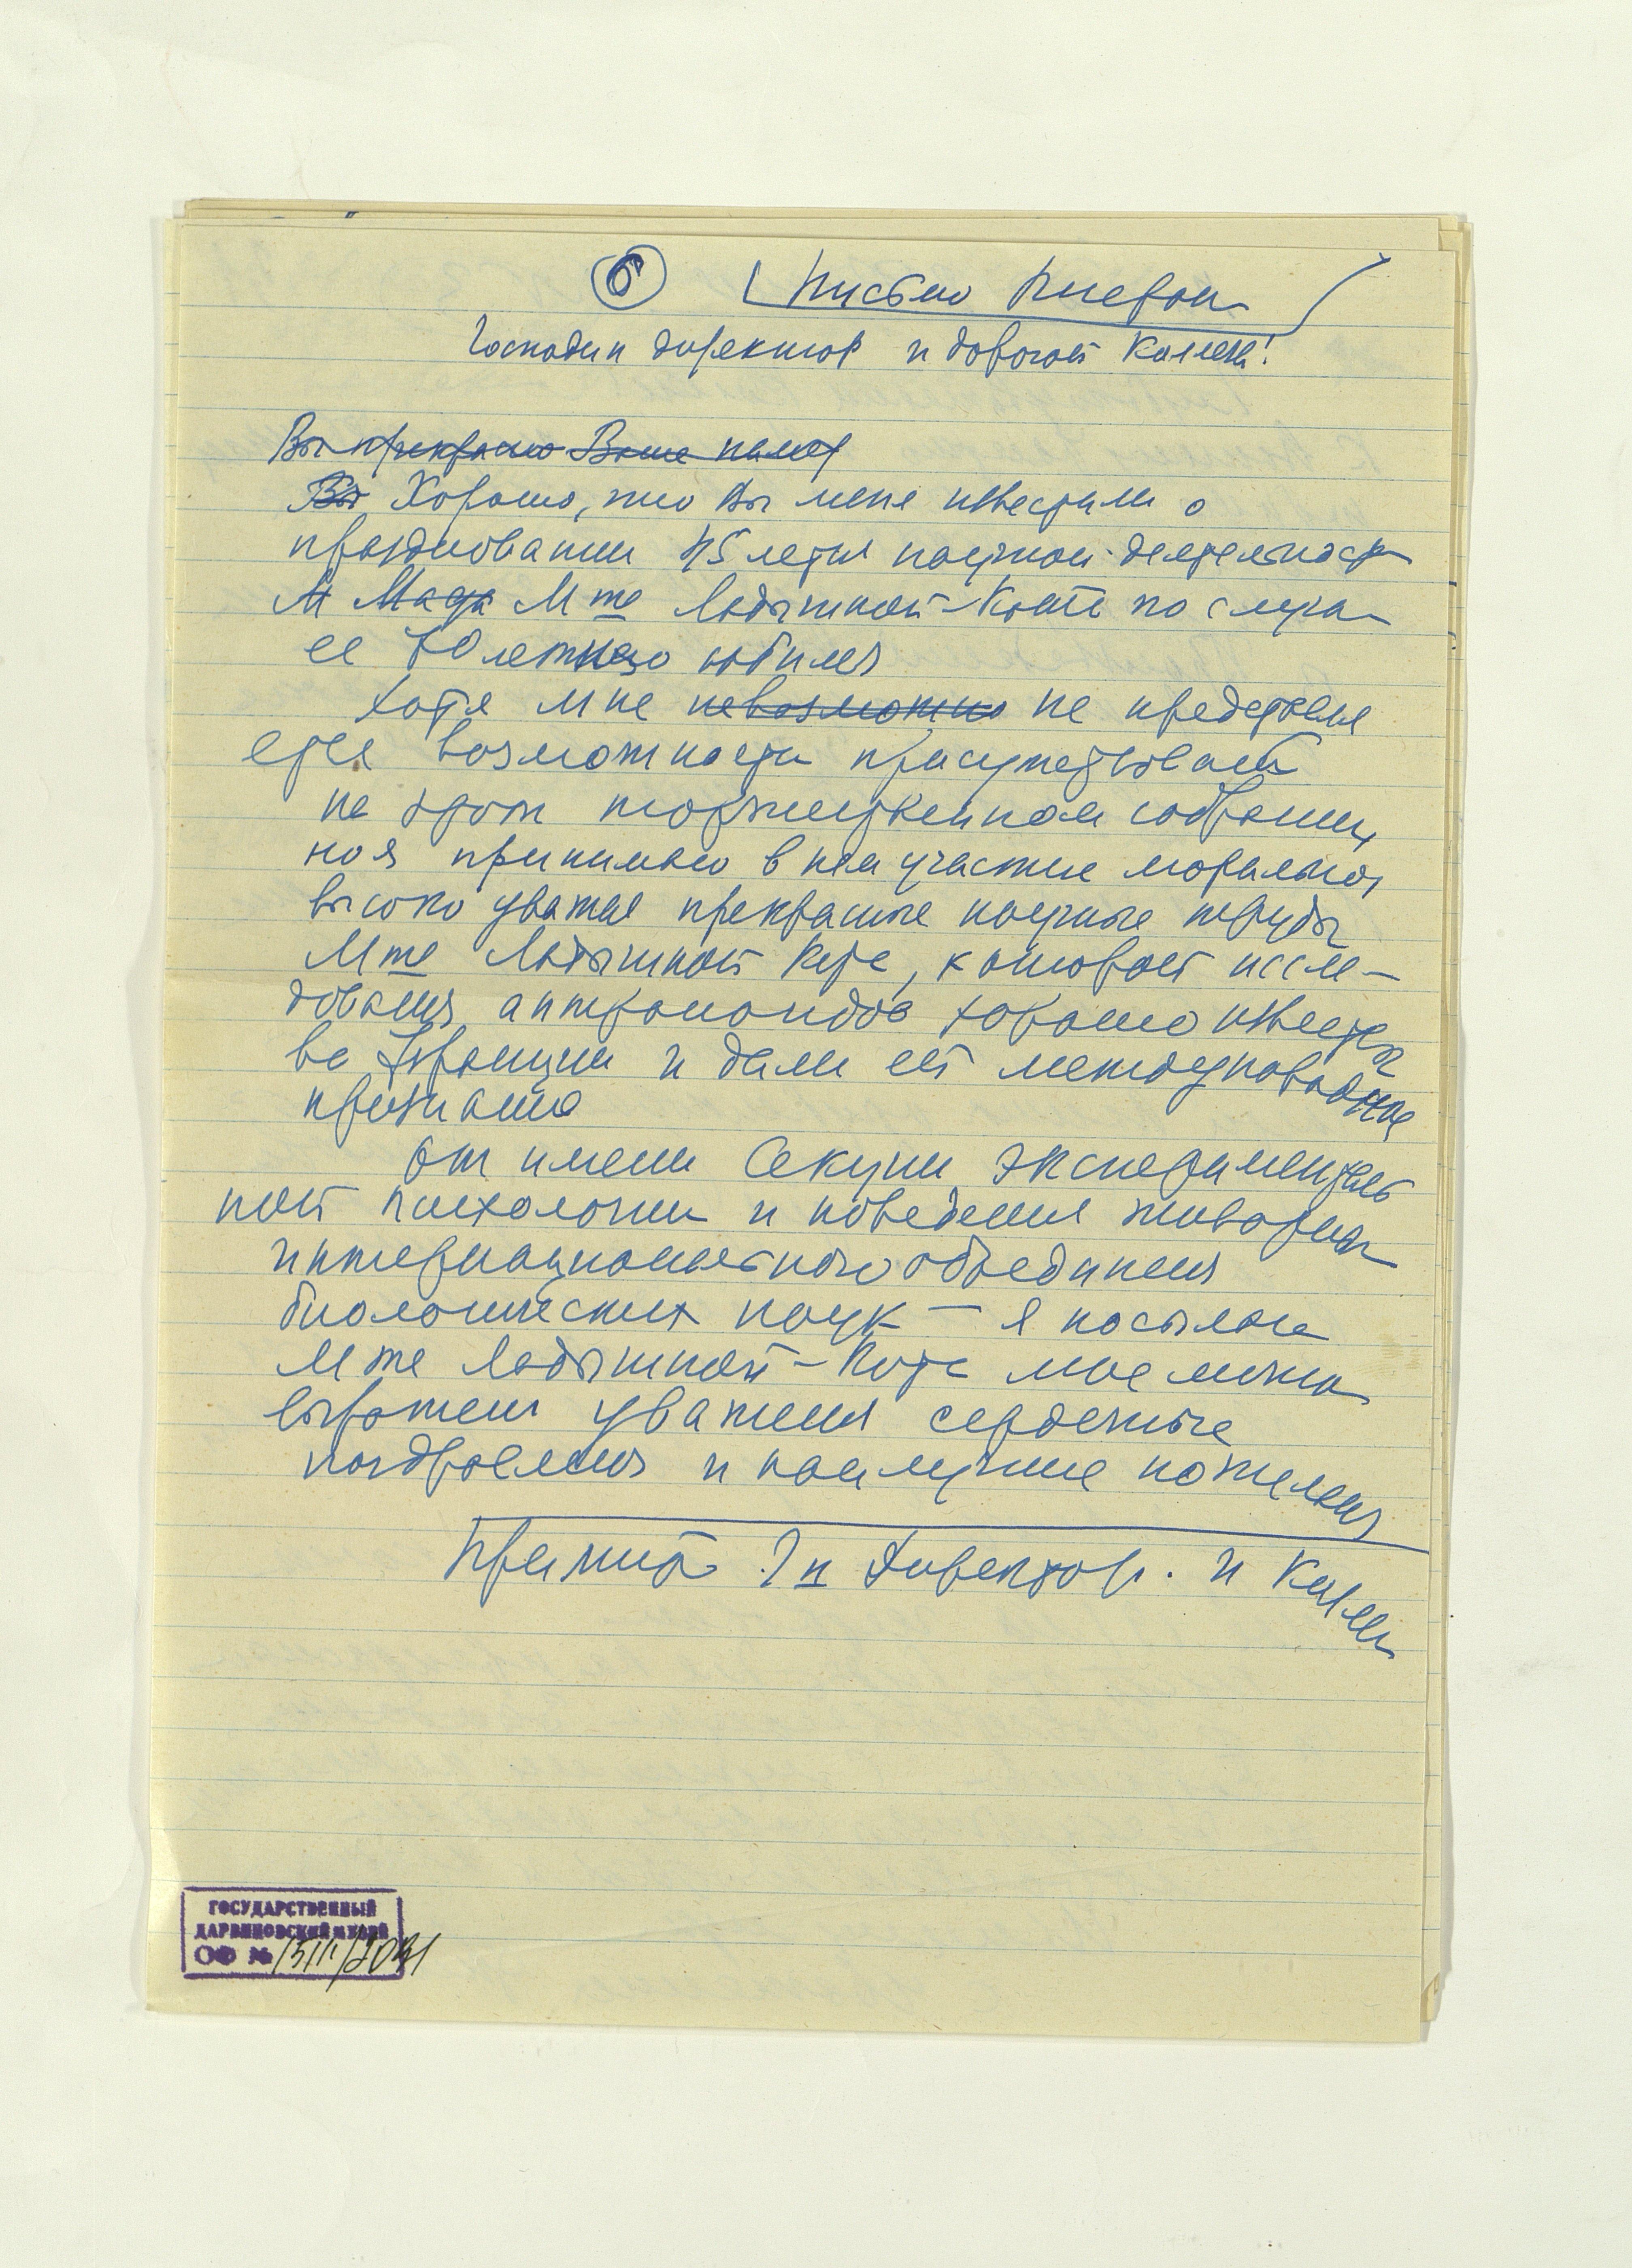 6 (Письмо Пиерон)
Господин директор и дорогой коллега!
Вы прекрасно Ваше
Вы Хорошо, что Вы меня известили о
праздновании 45 летия научной деятельности
М Мада Мme Ладыгиной-Котс по случаю
ее 70 летнего юбилея
Хотя мне невозможно не представля
ется возможности присутствовать
на этом торжественном собрании,
но я принимаю в нем участие морально,
высоко уважая прекрасные научные труды
Мme Ладыгиной Котс, которой иссле-
дования антропоидов хорошо известны
во Франции и дали ей международное
признание
От имени Секции эксперименталь
ной психологии и поведения животных
интернационального объединения
биологических наук — я посылаю
Мme Ладыгиной-Котс мое
уважения сердечные
поздравления и наилучшие пожелания
Примите Гн Директор. и Коллега
ГОСУДАРСТВЕННЫЙ
ДАРВИНОВСКИЙ МУЗЕЙ
ОФ №